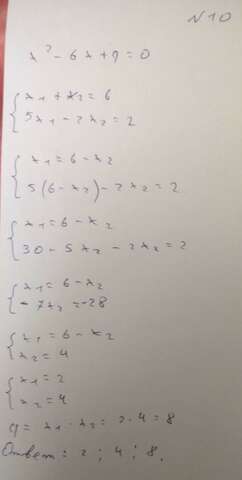 N10
x² - 6x + q = 0
{ x₁ + x₂ = 6
{ 5x₁ - 2x₂ = 2
{ x₁ = 6 - x₂
{ 5(6 - x₂) - 2x₂ = 2
{ x₁ = 6 - x₂
{ 30 - 5x₂ - 2x₂ = 2
{ x₁ = 6 - x₂
{ - 7x₂ = -28
{ x₁ = 6 - x₂
{ x₂ = 4
{ x₁ = 2
{ x₂ = 4
q = x₁ · x₂ = 2 · 4 = 8
Ответ: 2 ; 4 ; 8.